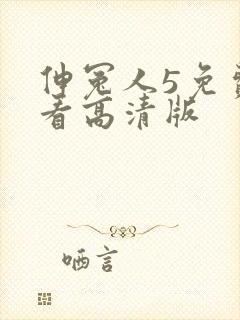 伸冤人5免费
看高清版
哂言